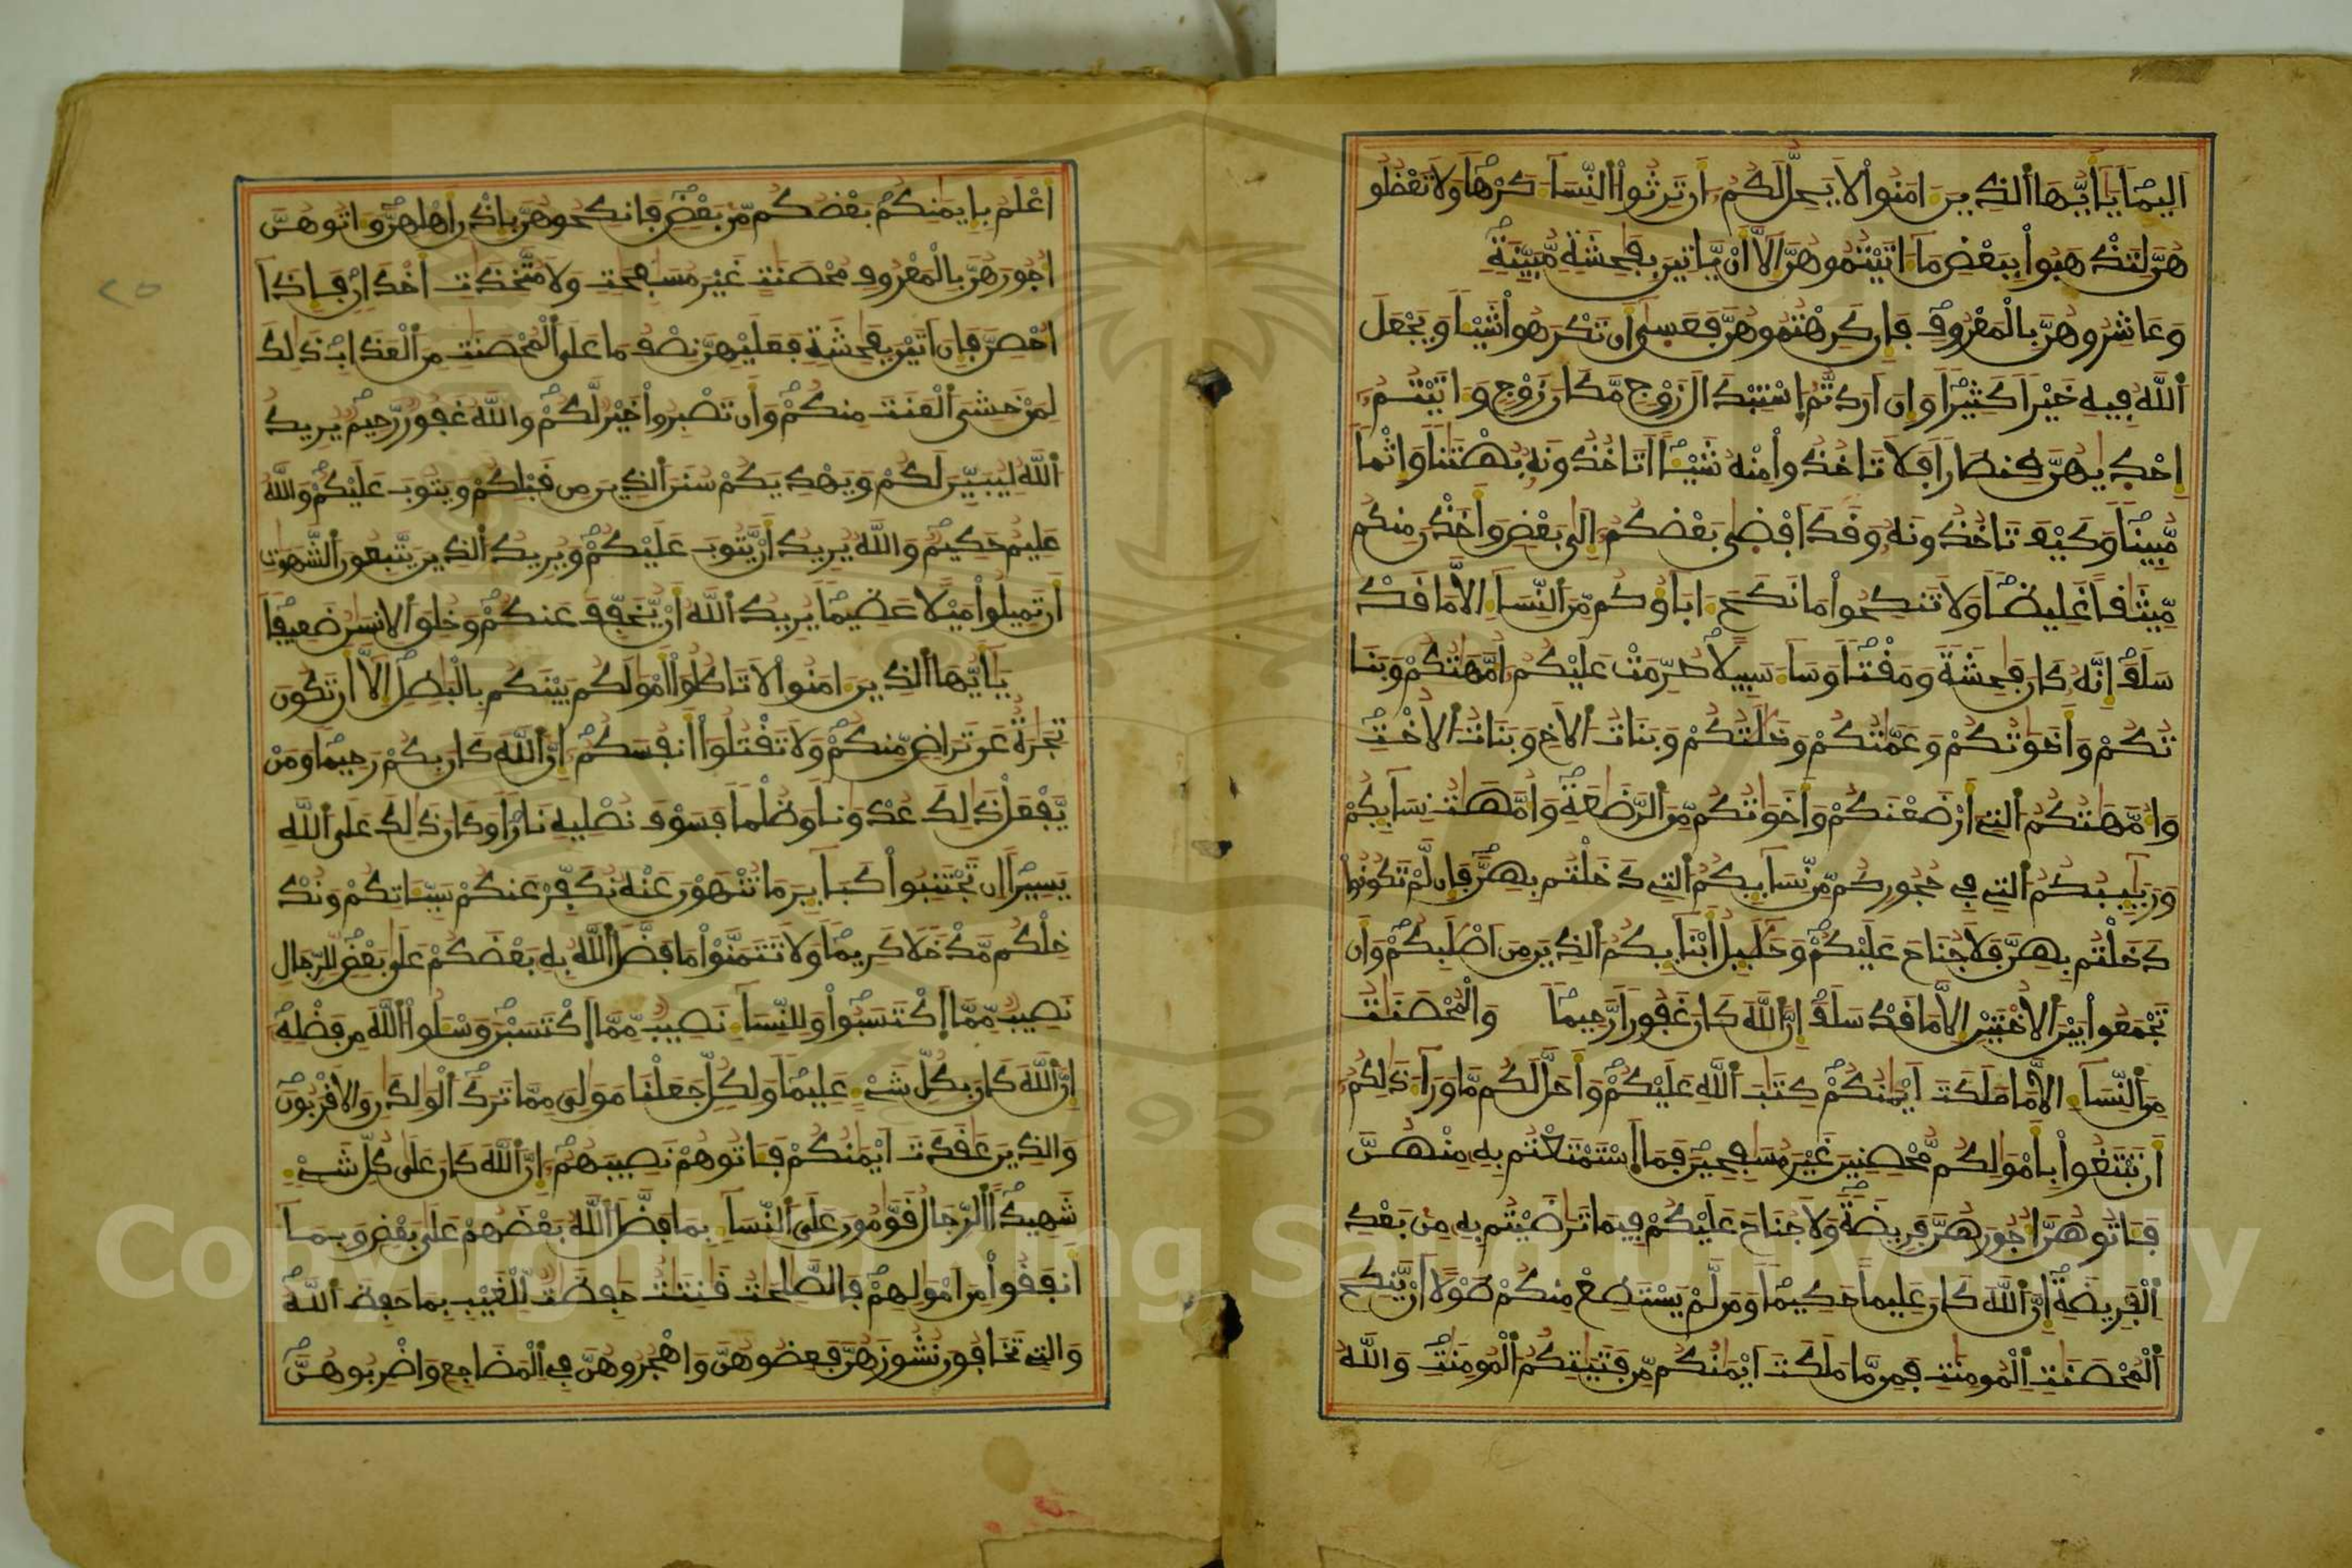 اَلِيمًا يَٰأَيُّهَا ألذِينَ ءَامَنُواْ لاَ يَحِلُّ لَكُمُۥ أَن تَرِثُواْ النِّسَآءَ كَرْهًا وَلاَ تَعْضُلُو
هُنَّ لِتَذْهَبُواْ بِبَعْضِ مَآ ءَاتَيْتُمُوهُنَّ إِلآَّ أَنْ يَّاتِينَ بِفَٰحِشَةٍ مُّبَيِّنَةٍ
وَعَاشِرُوهُنَّ بِالْمَعْرُوفِ فَإِن كَرِهْتُمُوهُنَّ فَعَسَىٰ أَن تَكْرَهُواْ شَيْـًٔا وَيَجْعَلَ
أللَّهُ فِيهِ خَيْرًا كَثِيرًا وَإِنَ اَرَدتُّمُ إسْتِبْدَالَ زَوْجٍ مَّكَانَ زَوْجٍ وَءَاتَيْتُمُۥ
إِحْدِيٰهُنَّ قِنطَارًا فَلاَ تَاخُذُواْ مِنْهُ شَيْـًٔا اَتَاخُذُونَهُۥ بُهْتَٰنًا وَإِثْمًا
مُّبِينًا وَكَيْفَ تَاخُذُونَهُۥ وَقَدَ اَفْضِىٰ بَعْضُكُمُۥ إِلَىٰ بَعْضٍ وَأَخَذْنَ مِنكُم
مِّيثَٰقًا غَلِيظًا وَلاَ تَنكِحُواْ مَا نَكَحَ ءَابَآؤُكُم مِّنَ ألنِّسَآءِ الاَّ مَا قَدْ
سَلَفَ إِنَّهُۥ كَانَ فَٰحِشَةً وَمَقْتًا وَسَآءَ سَبِيلاً حُرِّمَتْ عَلَيْكُمُۥ أُمَّهَٰتُكُمْ وَبَنَا
تُكُمْ وَأَخَوَٰتُكُمْ وَعَمَّٰتُكُمْ وَخَٰلَٰتُكُمْ وَبَنَاتُ ألاَخِ وَبَنَاتُ ألاُخْتِ
وَأُمَّهَٰتُكُمُ ألتِے أَرْضَعْنَكُمْ وَأَخَوَٰتُكُم مِّنَ ألرَّضَٰعَةِ وَأُمَّهَٰتُ نِسَآئِكُمْ
وَرَبَٰٓئِبُكُمُ ألتِے فِے حُجُورِكُم مِّن نِّسَآئِكُمُ ألتِے دَخَلْتُم بِهِنَّ فَإِن لَّمْ تَكُونُواْ
دَخَلْتُم بِهِنَّ فَلاَ جُنَاحَ عَلَيْكُمْ وَحَلَٰٓئِلُ أَبْنَآئِكُمُ ألذِينَ مِنَ اَصْلَٰبِكُمْ وَأَن
تَجْمَعُواْ بَيْنَ ألاُخْتَيْنِ إلاَّ مَا قَدْ سَلَفَ إِنَّ أللَّهَ كَانَ غَفُورًا رَّحِيمًا وَالْمُحْصَنَٰتُ
مِنَ ألنِّسَآءِ الاَّ مَا مَلَكَتَ اَيْمَٰنُكُمْ كِتَٰبَ أللَّهِ عَلَيْكُمْ وَأَحَلَّ لَكُم مَّا وَرَآءَ ذَٰلِكُمُۥ
أَن تَبْتَغُواْ بِأَمْوَٰلِكُم مُّحْصِنِينَ غَيْرَ مُسَٰفِحِينَ فَمَا إَسْتَمْتَعْتُم بِهِۦ مِنْهُنَّ
فَـَٔاتُوهُنَّ أُجُورَهُنَّ فَرِيضَةً وَلاَ جُنَاحَ عَلَيْكُمْ فِيمَا تَرَٰضَيْتُم بِهِۦ مِنۢ بَعْدِ
إلْفَرِيضَةِ إِنَّ أللَّهَ كَانَ عَلِيمًا حَكِيمًا وَمَن لَّمْ يَسْتَطِعْ مِنكُمْ طَوْلاً اَنْ يَّنكِحَ
ألْمُحْصَنَٰتِ إِلْمُومِنَٰتِ فَمِن مَّا مَلَكَتَ اَيْمَٰنُكُم مِّن فَتَيَٰتِكُمُ ألْمُومِنَٰتِ وَاللَّهُ
أَعْلَمُ بِإِيمَٰنِكُم بَعْضُكُم مِّنۢ بَعْضٍ فَانكِحُوهُنَّ بِإِذْنِ أَهْلِهِنَّ وَءَاتُوهُنَّ
أُجُورَهُنَّ بِالْمَعْرُوفِ مُحْصَنَٰتٍ غَيْرَ مُسَٰفِحَٰتٍ وَلاَ مُتَّخِذَٰتِ أَخْدَانٍ فَإِذَآ
أُحْصِنَّ فَإِنَ اَتَيْنَ بِفَٰحِشَةٍ فَعَلَيْهِنَّ نِصْفُ مَا عَلَى ألْمُحْصَنَٰتِ مِنَ ألْعَذَابِ ذَٰلِكَ
لِمَنْ خَشِىَ ألْعَنَتَ مِنكُمْ وَأَن تَصْبِرُواْ خَيْرٌ لَّكُمْ وَاللَّهُ غَفُورٌ رَّحِيمٌ يُرِيدُ
أللَّهُ لِيُبَيِّنَ لَكُمْ وَيَهْدِيَكُمْ سُنَنَ ألذِينَ مِن قَبْلِكُمْ وَيَتُوبَ عَلَيْكُمْ وَاللَّهُ
عَلِيمٌ حَكِيمٌ وَاللَّهُ يُرِيدُ أَنْ يَّتُوبَ عَلَيْكُمْ وَيُرِيدُ ألذِينَ يَتَّبِعُونَ ألشَّهَوَٰتِ
أَن تَمِيلُواْ مَيْلاً عَظِيمًا يُرِيدُ أللَّهُ أَنْ يُّخَفِّفَ عَنكُمْ وَخُلِقَ ألاِنسَٰنُ ضَعِيفًا
يَٰأَيُّهَا ألذِينَ ءَامَنُواْ لاَ تَاكُلُواْ أَمْوَٰلَكُم بَيْنَكُم بِالْبَٰطِلِ إِلآَّ أَن تَكُونَ
تِجَٰرَةٌ عَن تَرَاضٍ مِّنكُمْ وَلاَ تَقْتُلُواْ أَنفُسَكُمُۥ إِنَّ أللَّهَ كَانَ بِكُمْ رَحِيمًا وَمَنْ
يَّفْعَلْ ذَٰلِكَ عُدْوَٰنًا وَظُلْمًا فَسَوْفَ نُصْلِيهِ نَارًا وَكَانَ ذَٰلِكَ عَلَى أللَّهِ
يَسِيرًا إِن تَجْتَنِبُواْ كَبَآئِرَ مَا تُنْهَوْنَ عَنْهُ نُكَفِّرْ عَنكُمْ سَيِّـَٔاتِكُمْ وَنُدْ
خِلْكُم مَّدْخَلاً كَرِيمًا وَلاَ تَتَمَنَّوْاْ مَا فَضَّلَ أللَّهُ بِهِۦ بَعْضَكُمْ عَلَىٰ بَعْضٍ لِّلرِّجَالِ
نَصِيبٌ مِّمَّا إَكْتَسَبُواْ وَلِلنِّسَآءِ نَصِيبٌ مِّمَّا إَكْتَسَبْنَ وَسْـَٔلُواْ أللَّهَ مِن فَضْلِهِ
إِنَّ أللَّهَ كَانَ بِكُلِّ شَےْءٍ عَلِيمًا وَلِكُلٍّ جَعَلْنَا مَوَٰلِىَ مِمَّا تَرَكَ ألْوَٰلِدَٰنِ وَالاَقْرَبُونَ
وَالذِينَ عَٰقَدَتَ اَيْمَٰنُكُمْ فَـَٔاتُوهُمْ نَصِيبَهُمُۥ إِنَّ أللَّهَ كَانَ عَلَىٰ كُلِّ شَےْءٍ
شَهِيدًا ألرِّجَالُ قَوَّٰمُونَ عَلَى ألنِّسَآءِ بِمَا فَضَّلَ أللَّهُ بَعْضَهُمْ عَلَىٰ بَعْضٍ وَبِمَآ
أَنفَقُواْ مِنَ اَمْوَٰلِهِمْ فَالصَّٰلِحَٰتُ قَٰنِتَٰتٌ حَٰفِظَٰتٌ لِّلْغَيْبِ بِمَا حَفِظَ أللَّهُ
وَالتِے تَخَافُونَ نُشُوزَهُنَّ فَعِظُوهُنَّ وَاهْجُرُوهُنَّ فِے إِلْمَضَاجِعِ وَاضْرِبُوهُنَّ
٢٥
1957
Copyright © King Saud University